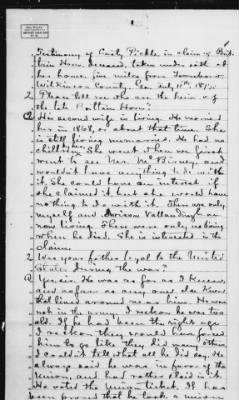 Testimony of Carly Pickle in claim of
Horn deceased, taken under oath at
her home five miles from
Wilkinson County, Ga. July 11th
Q Please tell me who are the heirs of
the late Horn?
A His second wife is living. He married
her in 1868, or about that time. She
is still living unmarried. He had no
children. She went when we first
went to see Mr. Mc and
wouldn't have anything to do with
it. She could have an interest if
she claimed it but she would have
nothing to do with it. There are only
myself and
now living. There were only us living
when he died. She is interested in the
claim.
Q Was your father loyal to the United
States during the war?
A Yes sir. He was as far as I knew,
and as far as any one else knew
that lived around us as him. He was
not in the army. I reckon he was too
old. If he had been the right age
I reckon they would have forced
him to go like they did many others.
I couldn't tell what all he did say. He
always said he was in favor of the
union, and had rather died in it.
He voted the union ticket. It has
been proved that he took a union